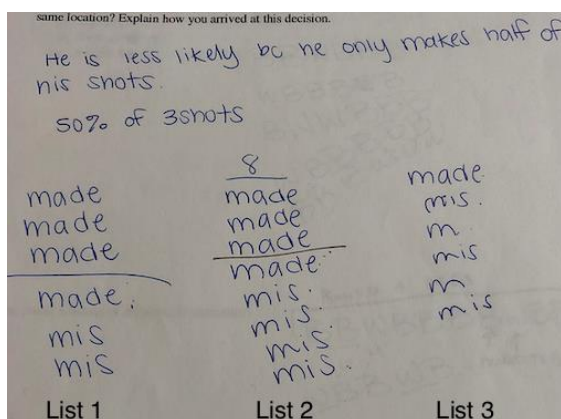 same location? Explain how you arrived at this decision.
He is less likely bc he only makes half of
his shots.
50% of 3shots
made
made
made
made.
mis
mis
List 1
8
made
made
made
made.
mis.
mis.
mis
mis.
List 2
made
mis.
m
mis
m
mis
List 3